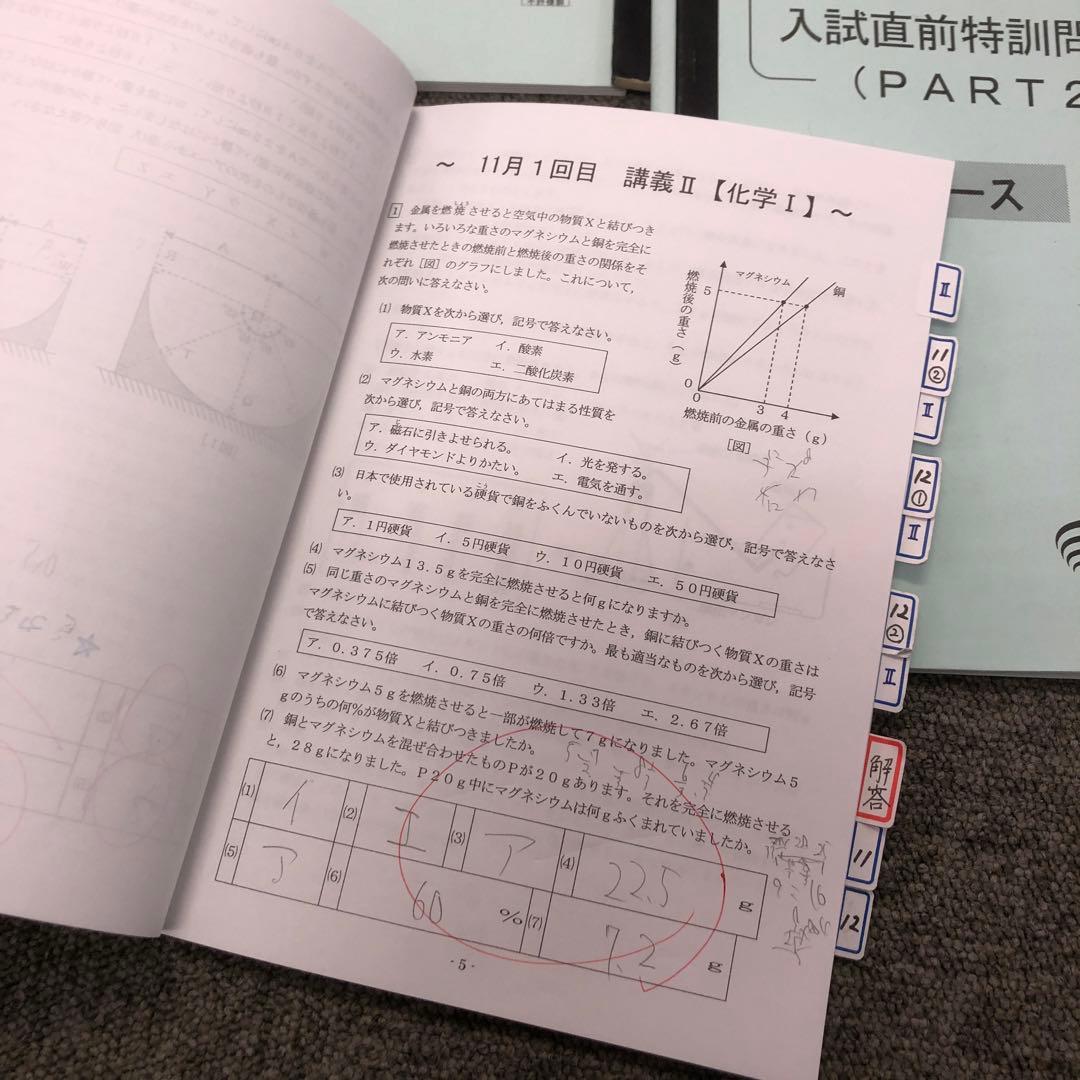 不許複製
入試直前特訓問
(PART2
ース
～ 11月1回目 講義Ⅱ【化学Ⅰ】～
1 金属を燃焼させると空気中の物質Xと結びつき
ます。いろいろな重さのマグネシウムと銅を完全に
燃焼させたときの燃焼前と燃焼後の重さの関係をそ
れぞれ［図］のグラフにしました。これについて，
次の問いに答えなさい。
(1) 物質Xを次から選び，記号で答えなさい。
ア．アンモニア イ．酸素
ウ．水素 エ．二酸化炭素
(2) マグネシウムと銅の両方にあてはまる性質を
次から選び，記号で答えなさい。
ア．磁石に引きよせられる。 イ．光を発する。
ウ．ダイヤモンドよりかたい。 エ．電気を通す。
燃焼後の重さ(g)
マグネシウム
銅
5
0
0 3 4
燃焼前の金属の重さ(g)
［図］
(3) 日本で使用されている硬貨で銅をふくんでいないものを次から選び，記号で答えなさ
い。
ア．1円硬貨 イ．5円硬貨 ウ．10円硬貨 エ．50円硬貨
(4) マグネシウム13.5gを完全に燃焼させると何gになりますか。
(5) 同じ重さのマグネシウムと銅を完全に燃焼させたとき，銅に結びつく物質Xの重さは
マグネシウムに結びつく物質Xの重さの何倍ですか。最も適当なものを次から選び，記号
で答えなさい。
ア．0.375倍 イ．0.75倍 ウ．1.33倍 エ．2.67倍
(6) マグネシウム5gを燃焼させると一部が燃焼して7gになりました。マグネシウム5
gのうちの何%が物質Xと結びつきましたか。
(7) 銅とマグネシウムを混ぜ合わせたものPが20gあります。それを完全に燃焼させる
と，28gになりました。P20g中にマグネシウムは何gふくまれていましたか。
(1) イ (2) エ (3) ア (4) 22.5 g
(5) ア (6) 60 % (7) 7.2 g
- 5 -
Ⅱ
11
②
Ⅱ
12
①
Ⅱ
12
②
Ⅱ
解答
11
12